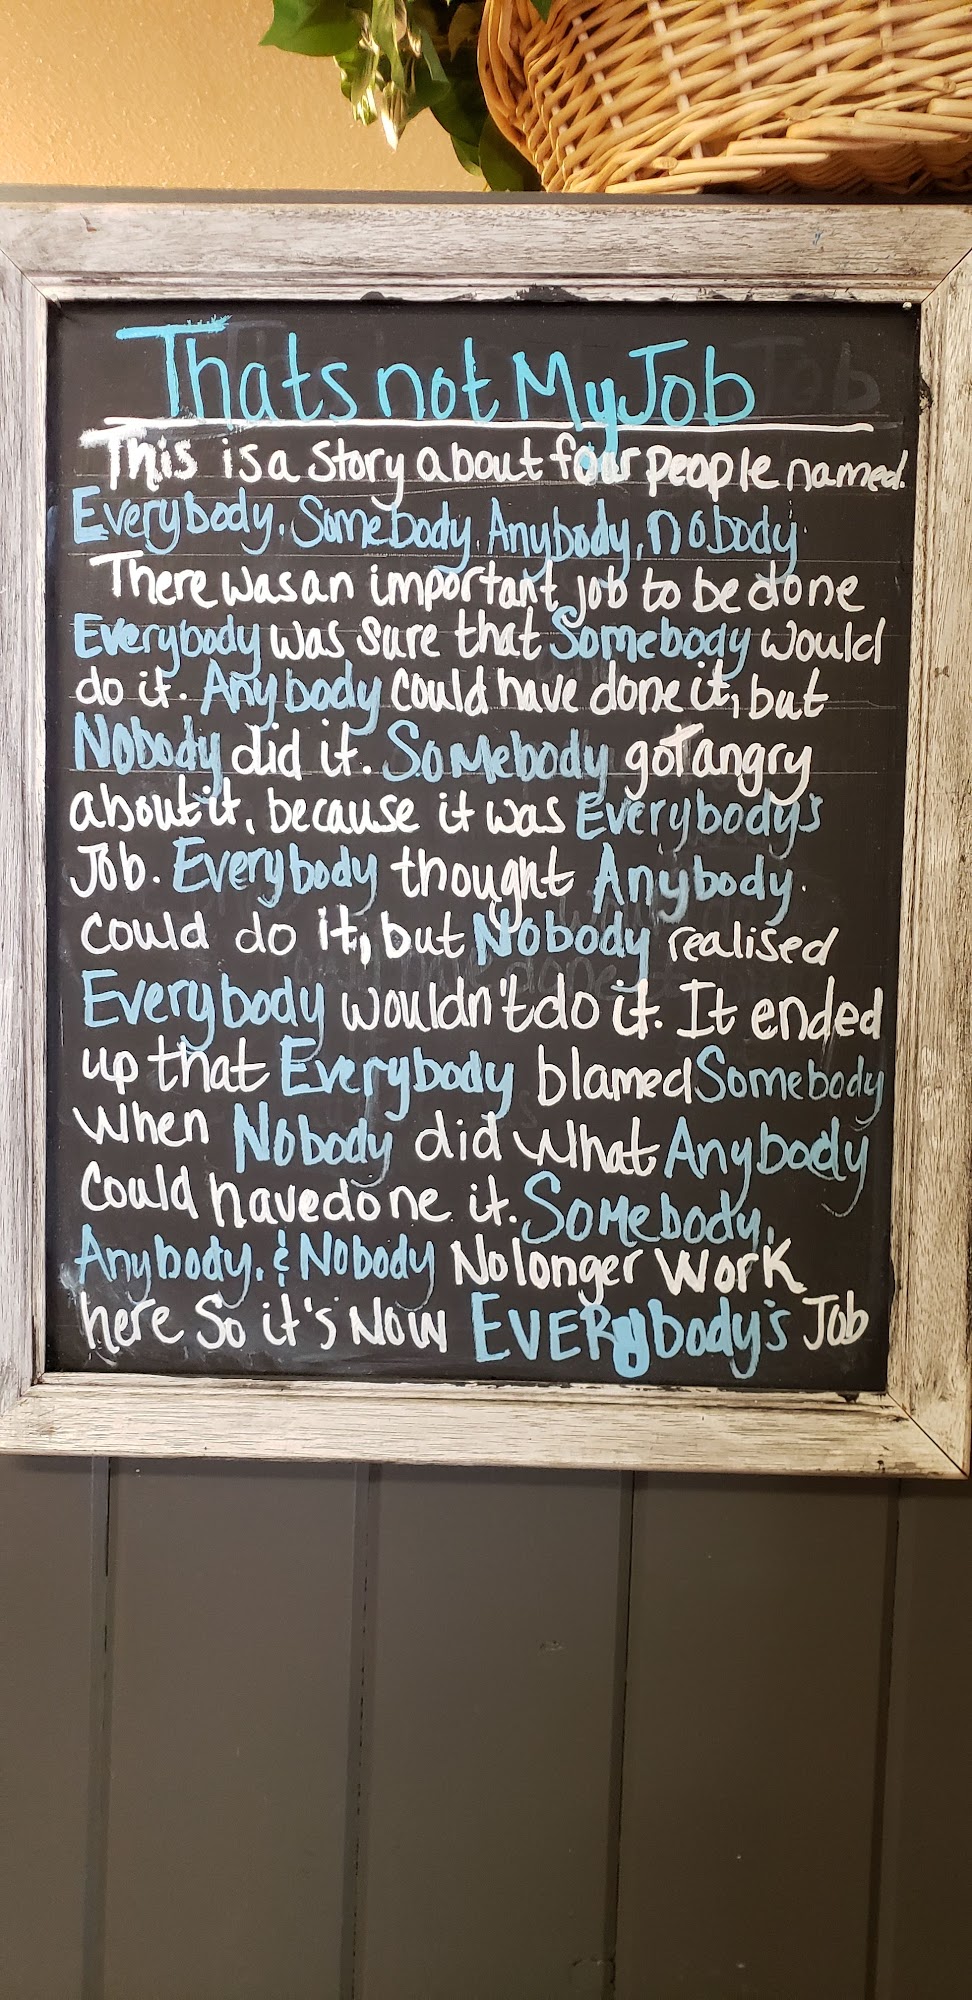 Thats not My Job
This is a story about four people named.
Everybody, Somebody, Anybody, nobody.
There was an important job to be done
Everybody was sure that Somebody would
do it. Anybody could have done it, but
Nobody did it. Somebody got angry
about it, because it was Everybody's
Job. Everybody thought Anybody.
could do it, but Nobody realised
Everybody wouldn't do it. It ended
up that Everybody blamed Somebody
When Nobody did what Anybody
Could have done it. Somebody,
Anybody, & Nobody No longer work
here So it's Now EVERybody's Job